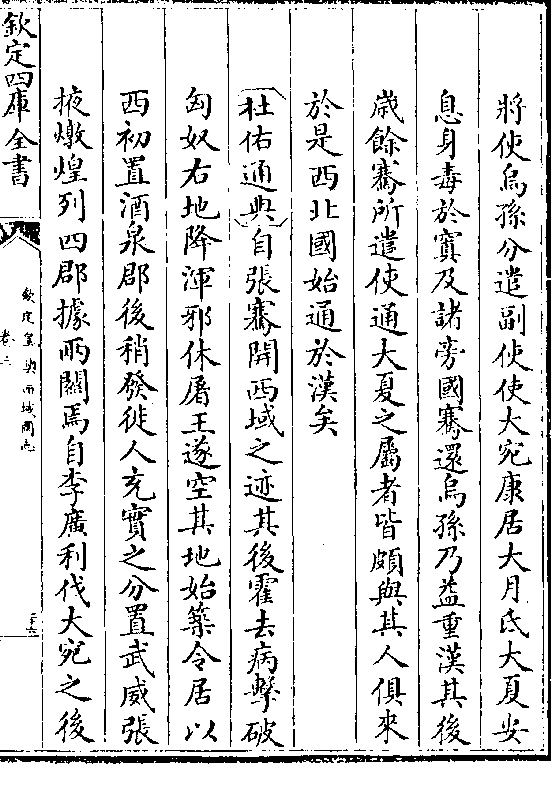 將使烏孫分遣副使使大宛康居大月氐大夏安
息身毒於窴及諸旁國騫還烏孫乃益重漢其後
歳餘騫所遣使通大夏之屬者皆頗與其人俱來
於是西北國始通於漢矣
杜佑通典自張騫開西域之迹其後霍去病擊破
匈奴右地降渾邪休屠王遂空其地始築令居以
西初置酒泉郡後稍發徙人充實之分置武威張
掖燉煌列四郡據兩關焉自李廣利伐大宛之後
欽定四庫全書
欽定皇輿西域圖志
卷二